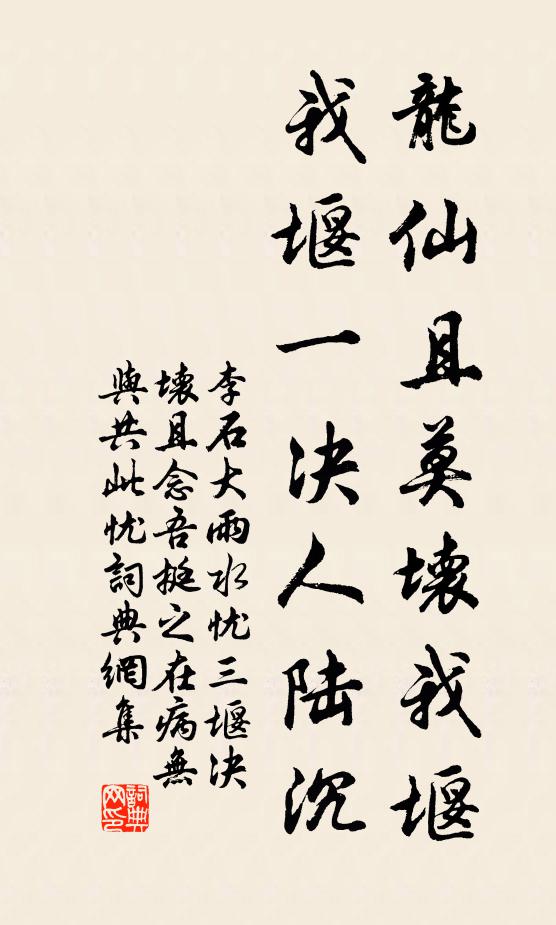 龍仙且莫壞我堰
我堰一决人陆沉
李石大雨水忧三堰决
壞且念吾挺之在病無
與共此忧詞典網集
詞典网印